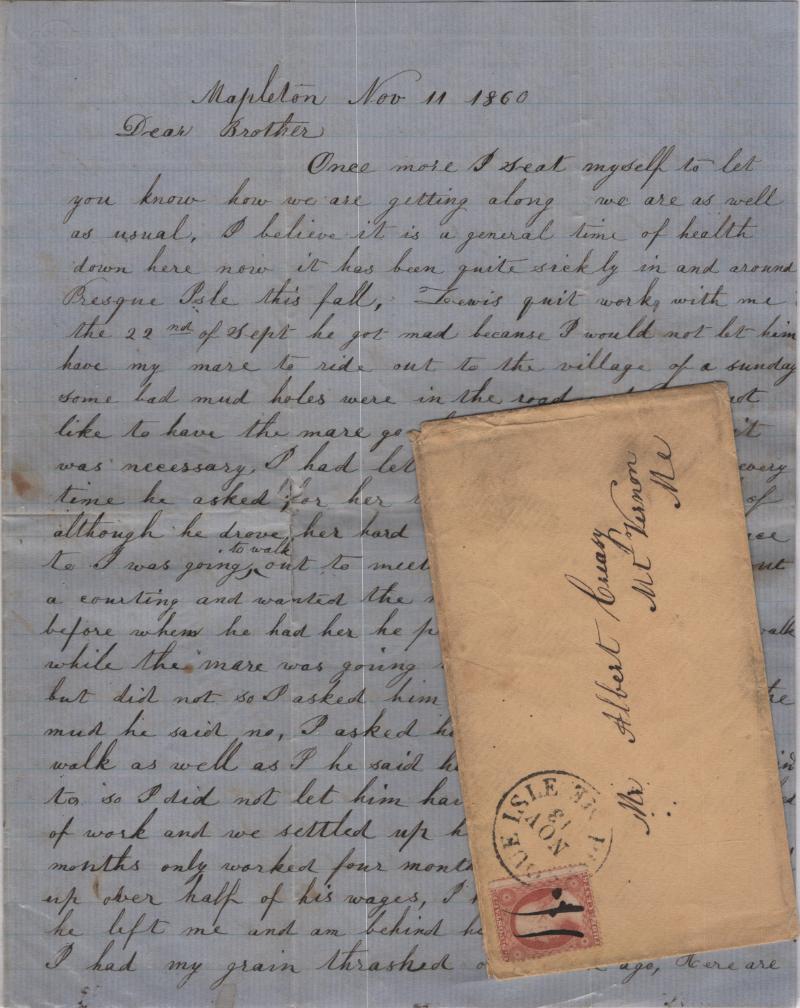 Mapleton Nov 11 1860
Dear Brother
Once more I seat myself to let
you know how we are getting along we are as well
as usual, I believe it is a general time of health
down here now it has been quite sickly in and around
Presque Isle this fall, Lewis quit work with me
the 22nd of Sept he got mad because I would not let him
have my mare to ride out to the village of a sunday
some bad mud holes were in the road not
like to have the mare go it
was necessary, I had let every
time he asked for her of
although he drove her hard
to I was going to walk out to meet
a courting and wanted the
before when he had her he walk
while the mare was going
but did not so I asked him the
mud he said no, I asked
walk as well as I he said
to so I did not let him
of work and we settled up
months only worked four
up over half of his wages, I
he left me and am behind
I had my grain thrashed ago, Here are
Mr Albert Creasy
Mt Vernon
Me
QUE ISLE ME
NOV
13
11